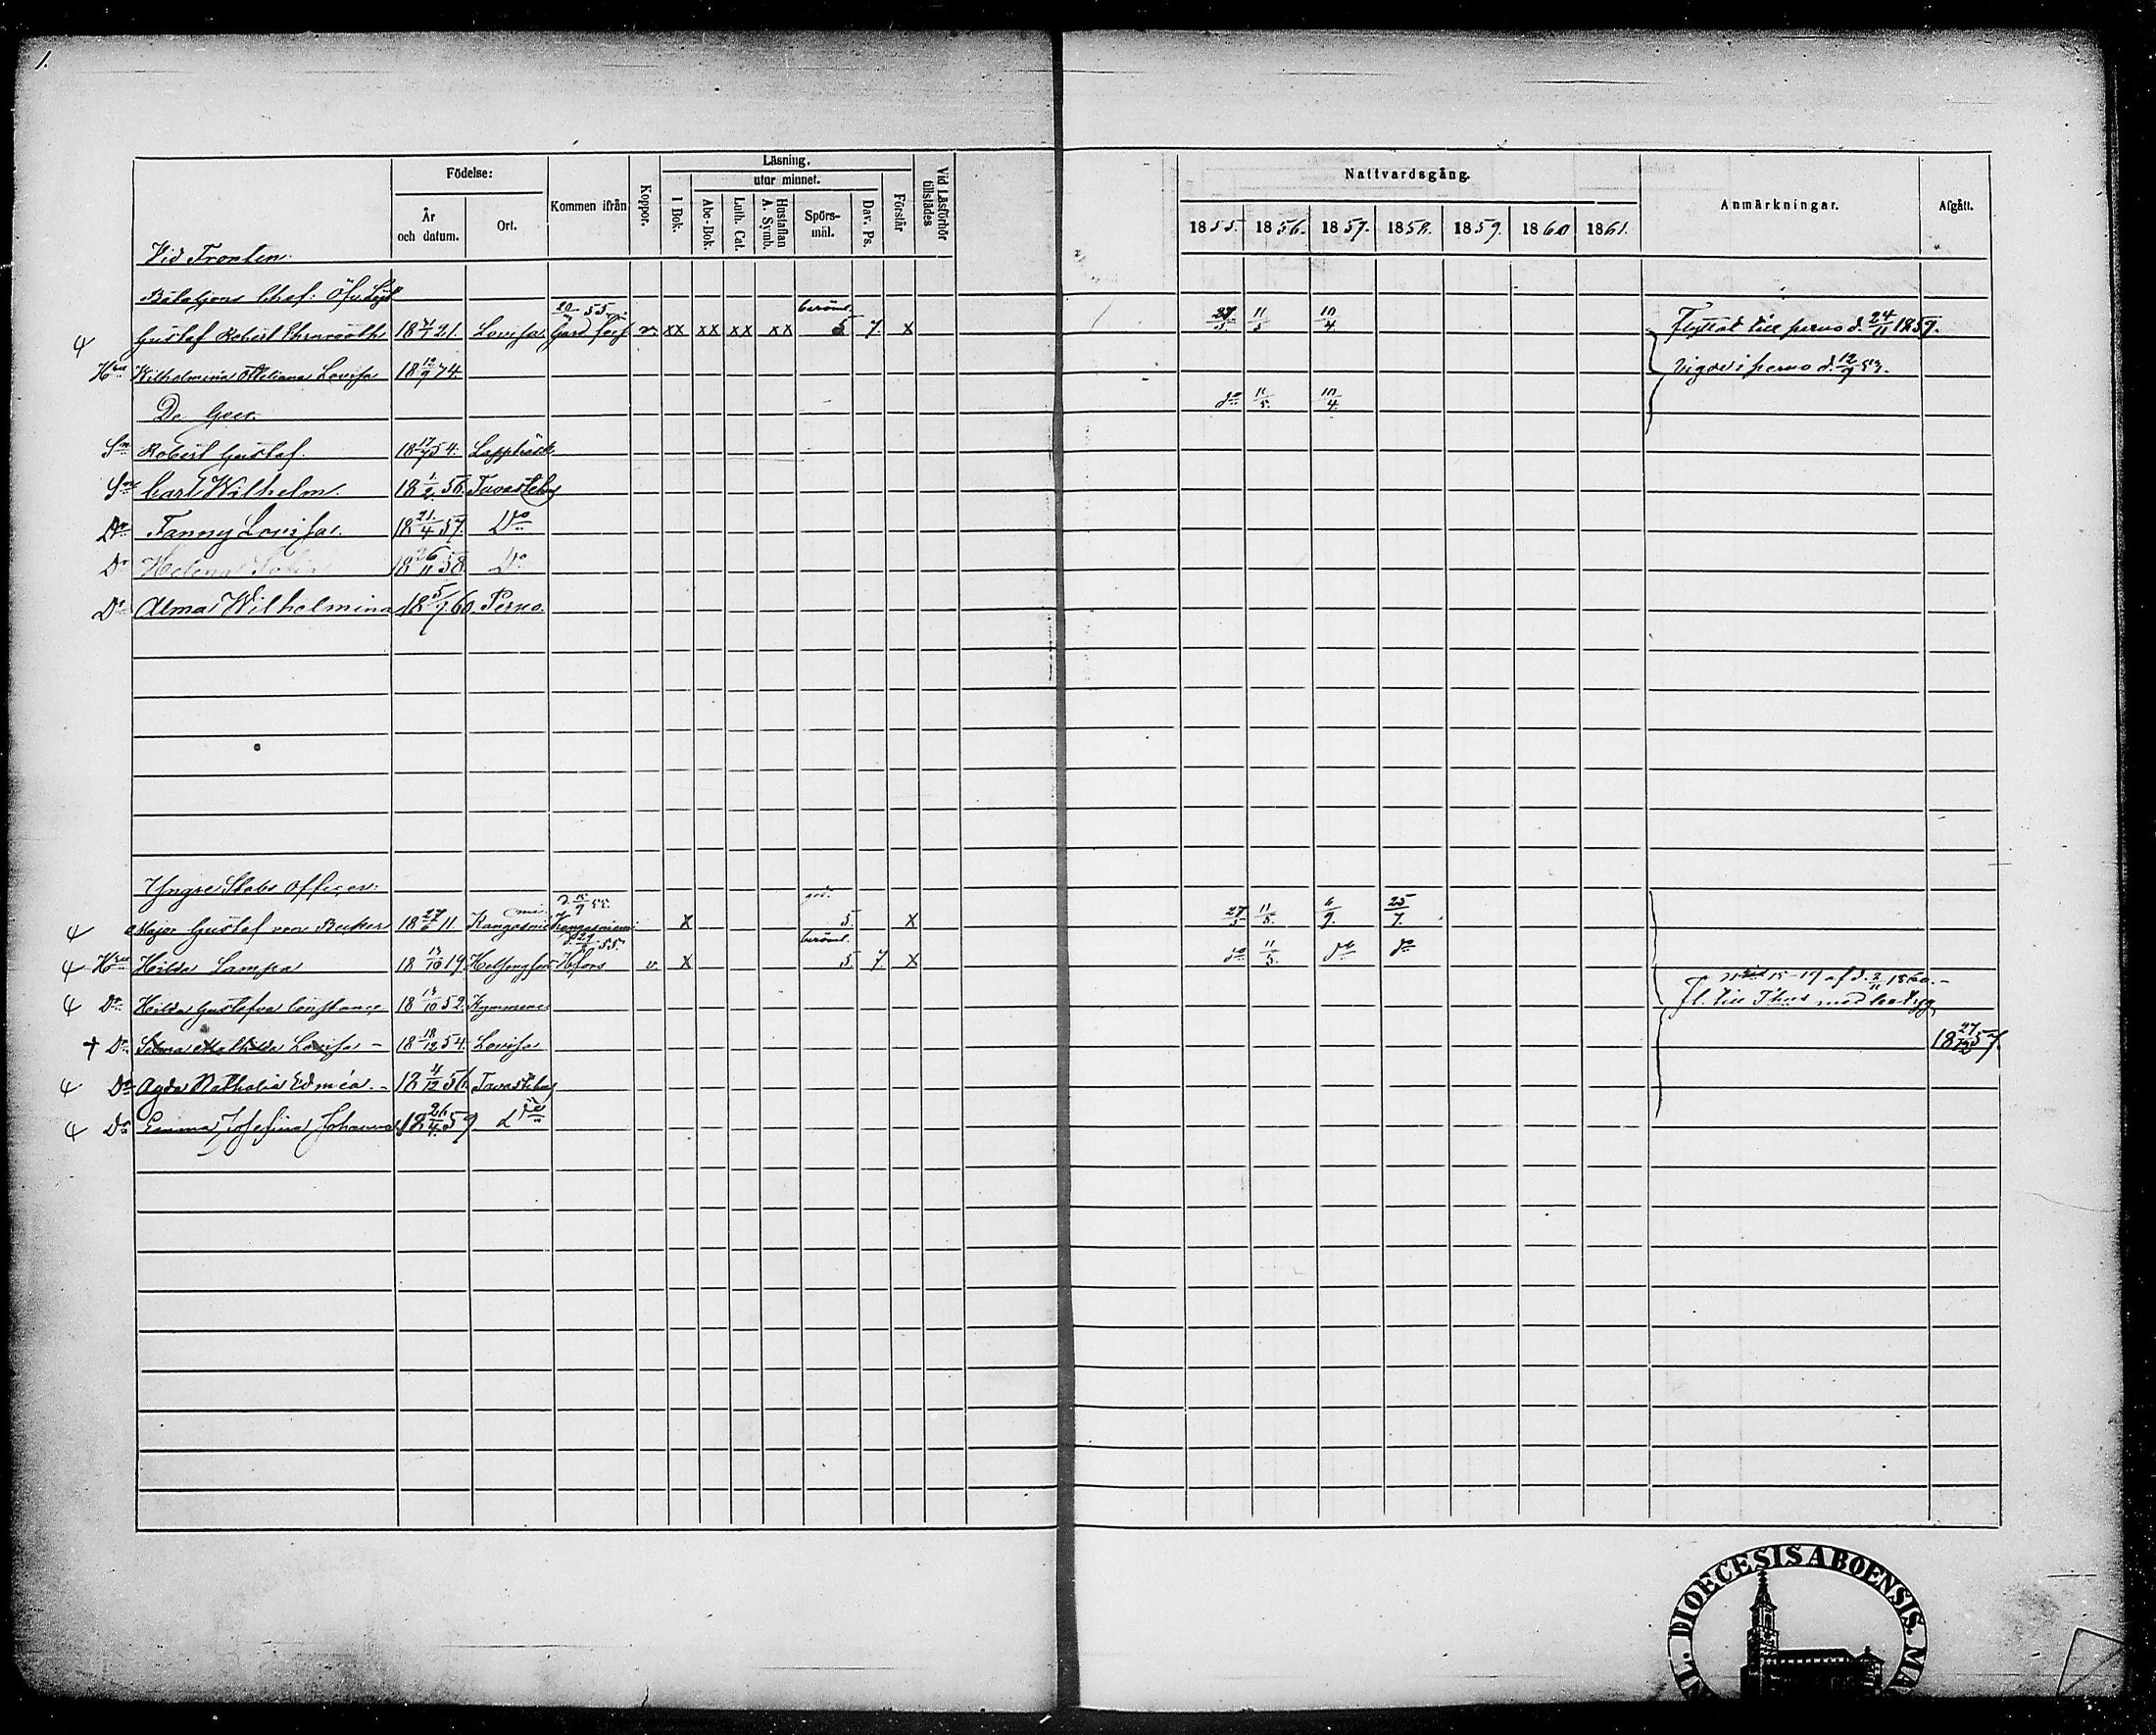 1.
Födelse:
Läsning.
utur minnet.
År och datum.
Ort.
Kommen ifrån
Koppor.
I Bok.
Abc-Bok.
Luth. Cat.
Hustaflan A. Symb.
Spörsmål.
Dav. Ps.
Förstår
Vid Läsförhör tillstädes
Nattvardsgång.
1855. 1856. 1857. 1858. 1859. 1860 1861.
Anmärkningar.
Afgått.
Vid Fronten.
Bataljons Chef:
Gustaf Robert Ehrnrooth 18 21. Lovisa. v. xx xx xx xx beröml. 5 7. x 11/5 10/4 Flyttat till perno d. 24/11 1859.
Hru Wilhelmina Lovisa 18 12/9 74. Vigde i perno d. 12/9 53.
De Geer. do 11/5. 10/4.
Sn Robert Gustaf. 18 17/7 54. Lappträsk
Sn Carl Wilhelm. 18 1/2 56. Tavastehus
Dr Fanny Lovisa. 18 21/4 57. Do
Dr Helena Sofia 18 26/11 58. Do
Dr Alma Wilhelmina 18 5/7 60. Perno.
Yngre Stabs Officer:
Major Gustaf von Becker 18 27/6 11. Kangasniemi Kangasniemi x god. 5. x 27/5 11/5. 6/9. 25/7.
Hru Hilda Lampa 18 13/10 19 Helsingfors Hfors v. x beröml. 5. 7 x do 11/5. do do
Dr Hilda Gustafva Constance 18 13/10 52. Kymmene
fl. till Thus med betyg
15-19 af d. 2/11 1860.-
† Dr Selma Mathilda Lovisa - 18 18/12 54. Lovisa 18 27/12 57.
Dr Agda Nathalia Edmèa. - 18 4/12 56. Tavastehus
Dr Emma Josefina Johanna 18 26/4 59 do
DIOECESIS ABOENSIS. MA